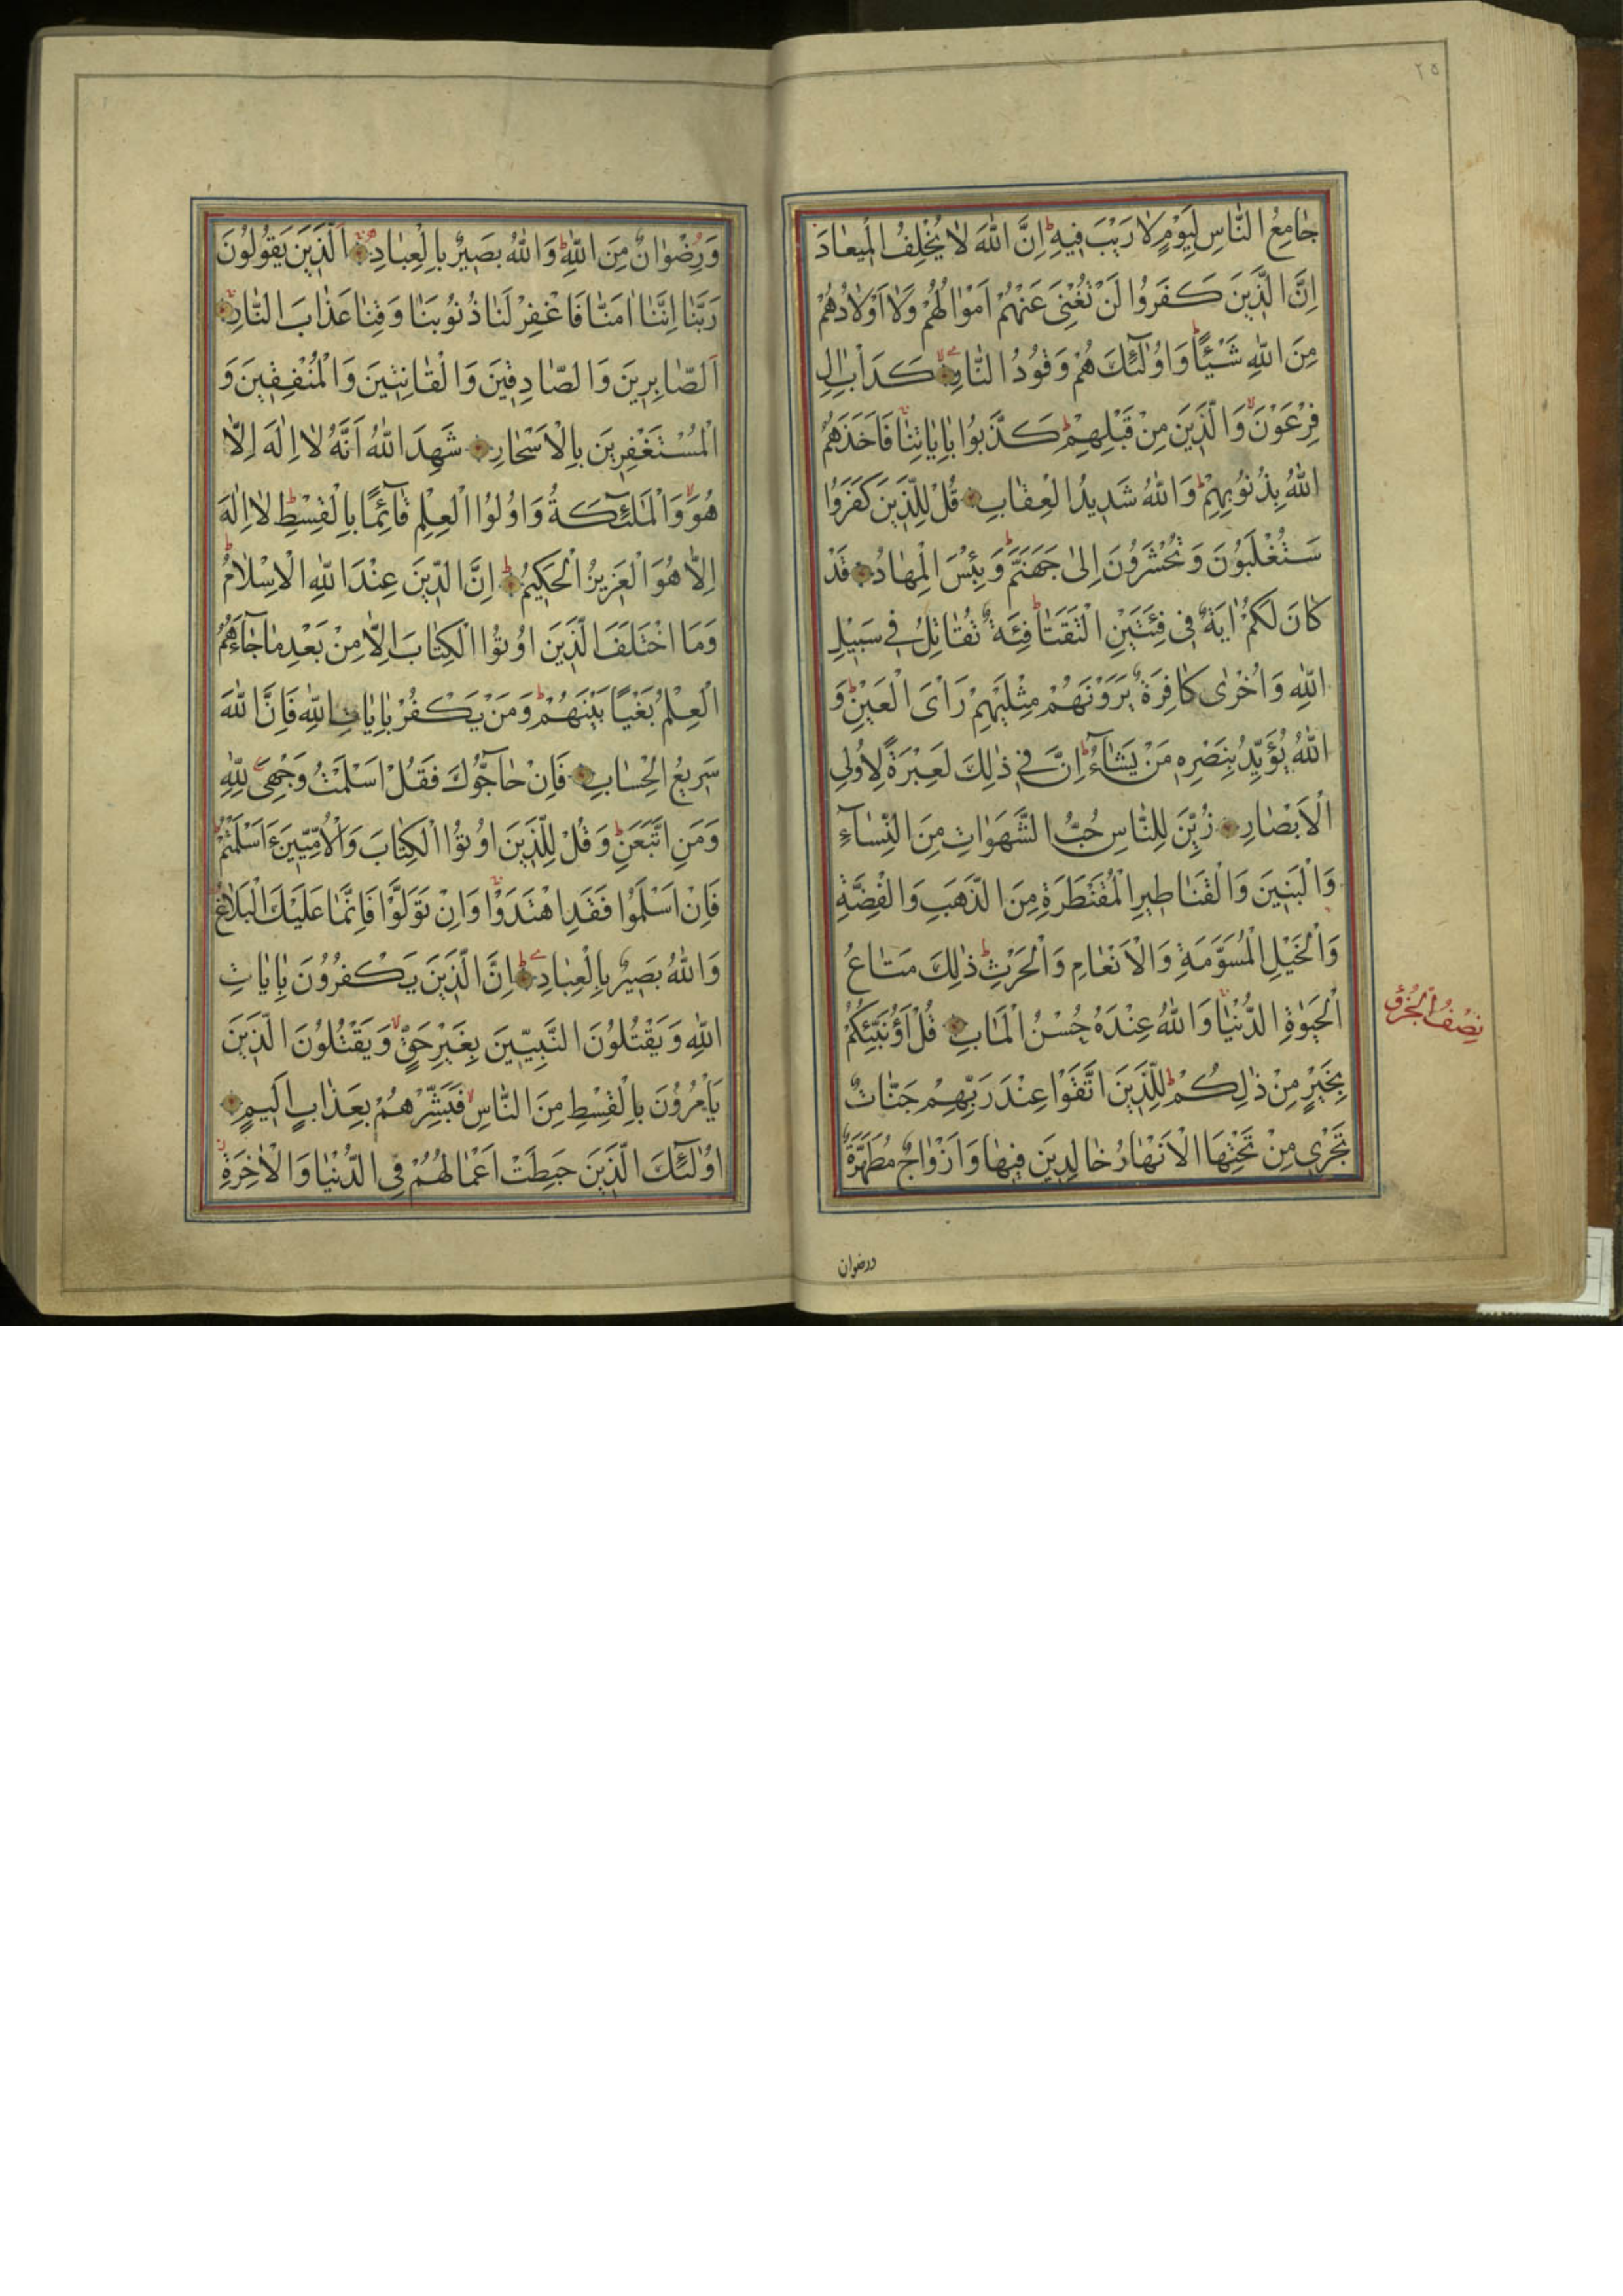 ٢٥
جٰامِعُ النّٰاسِ لِيَوْمٍ لٰا رَيْبَ فِيهِ ط اِنَّ اللّٰهَ لٰا يُخْلِفُ الْمِيعٰادَ
اِنَّ الَّذِينَ كَفَرُوا لَنْ تُغْنِيَ عَنْهُمْ اَمْوٰالُهُمْ وَلٰا اَوْلٰادُهُمْ
مِنَ اللّٰهِ شَيْئًا ط وَاُولٰئِكَ هُمْ وَقُودُ النّٰارِ كَدَأْبِ اٰلِ
فِرْعَوْنَ لا وَالَّذِينَ مِنْ قَبْلِهِمْ ط كَذَّبُوا بِاٰيٰاتِنٰا فَاَخَذَهُمُ
اللّٰهُ بِذُنُوبِهِمْ ط وَاللّٰهُ شَدِيدُ الْعِقٰابِ قُلْ لِلَّذِينَ كَفَرُوا
سَتُغْلَبُونَ وَتُحْشَرُونَ اِلىٰ جَهَنَّمَ ط وَبِئْسَ الْمِهٰادُ قَدْ
كٰانَ لَكُمْ اٰيَةٌ فِي فِئَتَيْنِ الْتَقَتٰا ط فِئَةٌ تُقٰاتِلُ فِي سَبِيلِ
اللّٰهِ وَاُخْرٰى كٰافِرَةٌ يَرَوْنَهُمْ مِثْلَيْهِمْ رَأْيَ الْعَيْنِ ط وَ
اللّٰهُ يُؤَيِّدُ بِنَصْرِهِ مَنْ يَشٰآءُ ط اِنَّ فِي ذٰلِكَ لَعِبْرَةً لِاُولِي
الْاَبْصٰارِ زُيِّنَ لِلنّٰاسِ حُبُّ الشَّهَوٰاتِ مِنَ النِّسٰآءِ
وَالْبَنِينَ وَالْقَنٰاطِيرِ الْمُقَنْطَرَةِ مِنَ الذَّهَبِ وَالْفِضَّةِ
وَالْخَيْلِ الْمُسَوَّمَةِ وَالْاَنْعٰامِ وَالْحَرْثِ ط ذٰلِكَ مَتٰاعُ
الْحَيٰوةِ الدُّنْيٰا وَاللّٰهُ عِنْدَهُ حُسْنُ الْمَاٰبِ قُلْ اَؤُنَبِّئُكُمْ
بِخَيْرٍ مِنْ ذٰلِكُمْ ط لِلَّذِينَ اتَّقَوْا عِنْدَ رَبِّهِمْ جَنّٰاتٌ
تَجْرِي مِنْ تَحْتِهَا الْاَنْهٰارُ خٰالِدِينَ فِيهٰا وَاَزْوٰاجٌ مُطَهَّرَةٌ
ورضوان
وَرِضْوٰانٌ مِنَ اللّٰهِ ط وَاللّٰهُ بَصِيرٌ بِالْعِبٰادِ اَلَّذِينَ يَقُولُونَ
رَبَّنٰا اِنَّنٰا اٰمَنّٰا فَاغْفِرْ لَنٰا ذُنُوبَنٰا وَقِنٰا عَذٰابَ النّٰارِ
اَلصّٰابِرِينَ وَالصّٰادِقِينَ وَالْقٰانِتِينَ وَالْمُنْفِقِينَ وَ
الْمُسْتَغْفِرِينَ بِالْاَسْحٰارِ شَهِدَ اللّٰهُ اَنَّهُ لٰا اِلٰهَ اِلّٰا
هُوَ لا وَالْمَلٰئِكَةُ وَاُولُوا الْعِلْمِ قٰآئِمًا بِالْقِسْطِ ط لٰا اِلٰهَ
اِلّٰا هُوَ الْعَزِيزُ الْحَكِيمُ ط اِنَّ الدِّينَ عِنْدَ اللّٰهِ الْاِسْلٰامُ
وَمَا اخْتَلَفَ الَّذِينَ اُوتُوا الْكِتٰابَ اِلّٰا مِنْ بَعْدِ مٰا جٰآءَهُمُ
الْعِلْمُ بَغْيًا بَيْنَهُمْ ط وَمَنْ يَكْفُرْ بِاٰيٰاتِ اللّٰهِ فَاِنَّ اللّٰهَ
سَرِيعُ الْحِسٰابِ فَاِنْ حٰآجُّوكَ فَقُلْ اَسْلَمْتُ وَجْهِيَ لِلّٰهِ
وَمَنِ اتَّبَعَنِ ط وَقُلْ لِلَّذِينَ اُوتُوا الْكِتٰابَ وَالْاُمِّيِّينَ ءَاَسْلَمْتُمْ ط
فَاِنْ اَسْلَمُوا فَقَدِ اهْتَدَوْا وَاِنْ تَوَلَّوْا فَاِنَّمٰا عَلَيْكَ الْبَلٰاغُ
وَاللّٰهُ بَصِيرٌ بِالْعِبٰادِ اِنَّ الَّذِينَ يَكْفُرُونَ بِاٰيٰاتِ
اللّٰهِ وَيَقْتُلُونَ النَّبِيِّينَ بِغَيْرِ حَقٍّ لا وَيَقْتُلُونَ الَّذِينَ
يَأْمُرُونَ بِالْقِسْطِ مِنَ النّٰاسِ لا فَبَشِّرْهُمْ بِعَذٰابٍ اَلِيمٍ
اُولٰئِكَ الَّذِينَ حَبِطَتْ اَعْمٰالُهُمْ فِي الدُّنْيٰا وَالْاٰخِرَةِ